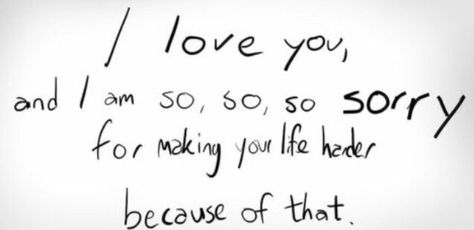 I love you,
and I am so, so, so sorry
for making your life harder
because of that.